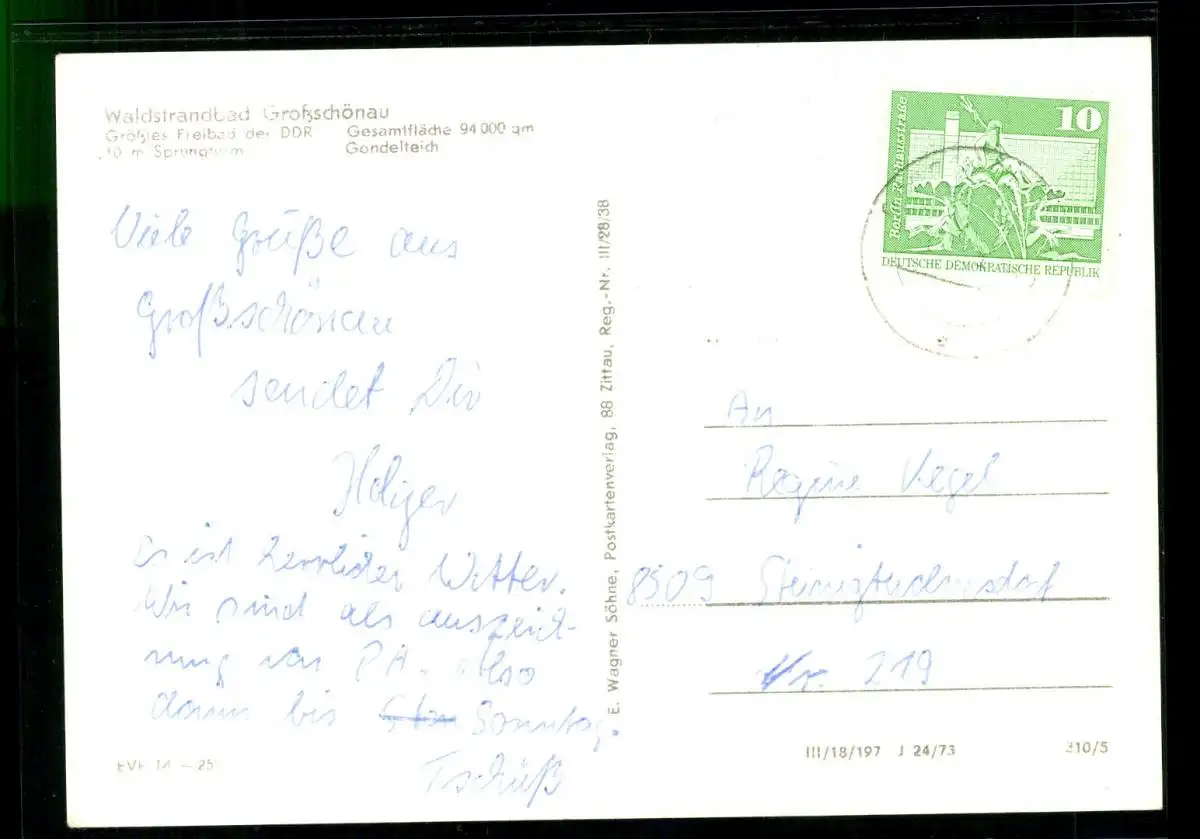 Waldstrandbad Großschönau
Größtes Freibad der DDR Gesamtfläche 94 000 qm
10 m Sprungturm Gondelteich
Viele Grüße aus
Großschönau
sendet Dir
Holger
Es ist herrliches Wetter.
Wir sind als auszeich-
nung von PA. Also
dann bis Sonntag.
Tschüß
EVP M – 25
E. Wagner Söhne, Postkartenverlag, 88 Zittau, Reg.-Nr. III/28/38
10
Berlin-Rathausstraße
DEUTSCHE DEMOKRATISCHE REPUBLIK
An
Regine Vegel
8509 Steinigtwolmsdorf
Nr. 219
III/18/197 J 24/73 310/5